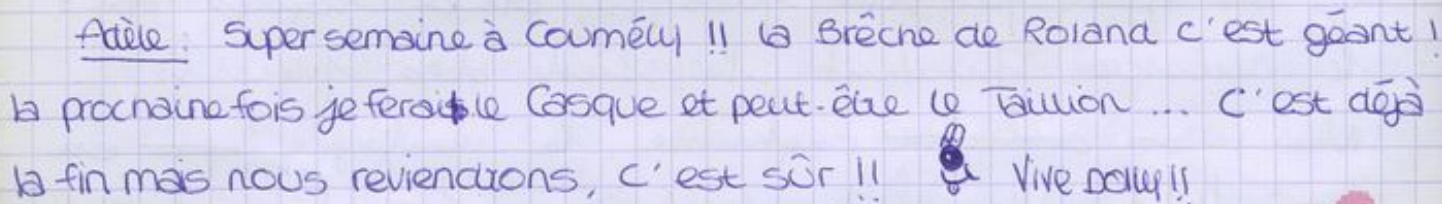 Adèle : Super semaine à Coumély !! la Brêche de Roland c'est géant !
la prochaine fois je ferai le Casque et peut-être le Taillion ... C'est déjà
la fin mais nous reviendrons, c'est sûr !! Vive Dolly !!